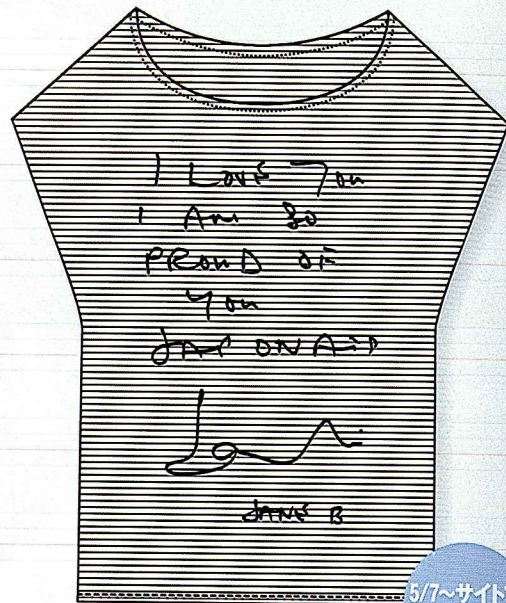 I LOVE You
I Am So
PROUD OF
You
JAPONAID
JANE B
5/7~サイト